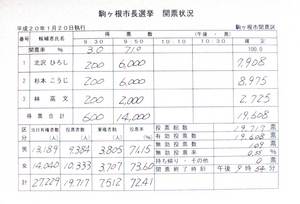 駒ヶ根市長選挙 開票状況
平成20年1月20日執行 駒ヶ根市開票区
番号 候補者氏名 (午後・票)
9-30 9-50 10-10 10-30 確定
開票率 % 3.0 71.0 100.0
1 北沢 ひろし 200 6,000 7,908
2 杉本 こうじ 200 6,000 8,975
3 林 高文 200 2,000 2,725
合計 600 14,000 19,608
区分 当日有権者数 投票者数 棄権者数 投票率%
男 13,189 9,384 3,805 71.15
女 14,040 10,333 3,707 73.60
計 27,229 19,717 7,512 72.41
投票総数 19,717 票
有効投票数 19,608 票
無効投票数 109 票
無効投票率 0.55 %
持ち帰り・その他 0 票
開票終了時刻 午後9時54分